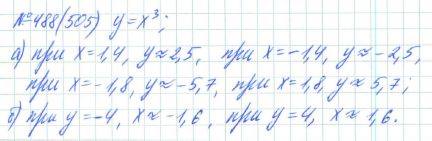 №488(505) y=x³;
а) при x=1,4, y≈2,5, при x=-1,4, y≈-2,5,
при x=-1,8, y≈-5,7, при x=1,8, y≈5,7;
б) при y=-4, x≈-1,6, при y=4, x≈1,6.